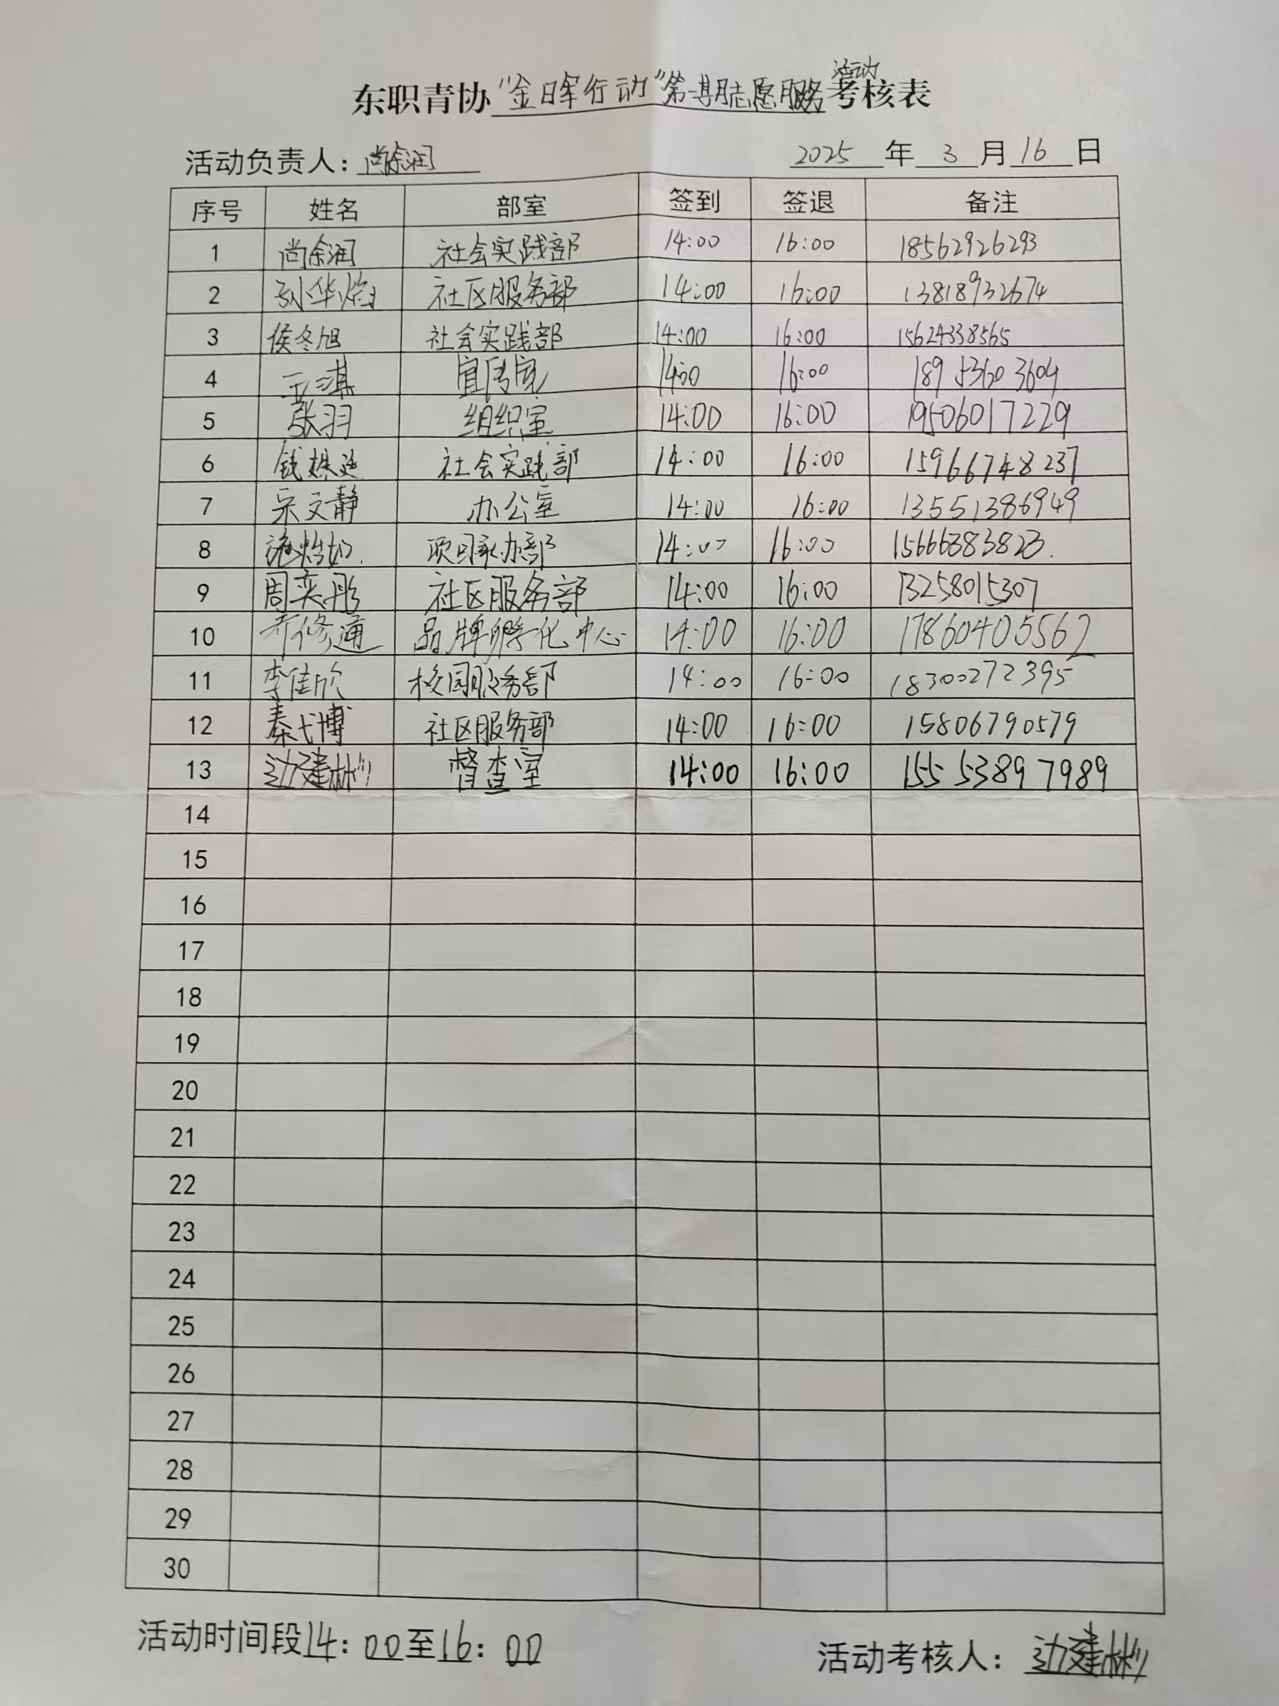 东职青协“金晖行动”第期志愿服务活动考核表
活动负责人：尚余润 2025年3月16日
序号 姓名 部室 签到 签退 备注
1 尚余润 社会实践部 14:00 16:00 18562926293
2 社区服务部 14:00 16:00 13818932674
3 侯冬旭 社会实践部 14:00 16:00 15624338565
4 王淇 宣传室 14:00 16:00 189 5360 3604
5 张羽 组织室 14:00 16:00 19506017229
6 社会实践部 14:00 16:00 15966748237
7 宋文静 办公室 14:00 16:00 13551386949
8 项目承办部 14:00 16:00 15666383823.
9 周奕彤 社区服务部 14:00 16:00 13258015307
10 齐修通 品牌孵化中心 14:00 16:00 17860405562
11 李佳欣 校园服务部 14:00 16:00 18300272395
12 秦弋博 社区服务部 14:00 16:00 15806790579
13 边建彬 督查室 14:00 16:00 155 5389 7989
14
15
16
17
18
19
20
21
22
23
24
25
26
27
28
29
30
活动时间段14：00至16：00 活动考核人：边建彬